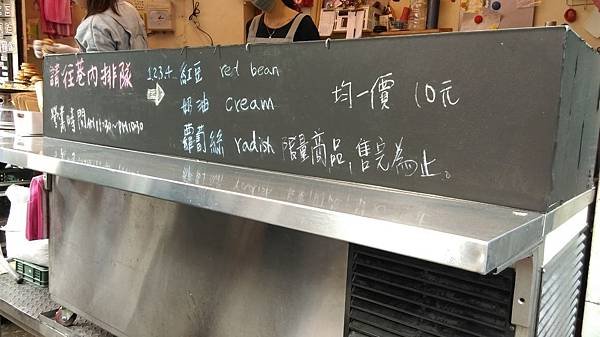 請往巷內排隊
營業時間AM11:30~PM10:30
123+ 紅豆 red bean
奶油 cream
蘿蔔絲 radish 限量商品,售完為止。
均一價 10元